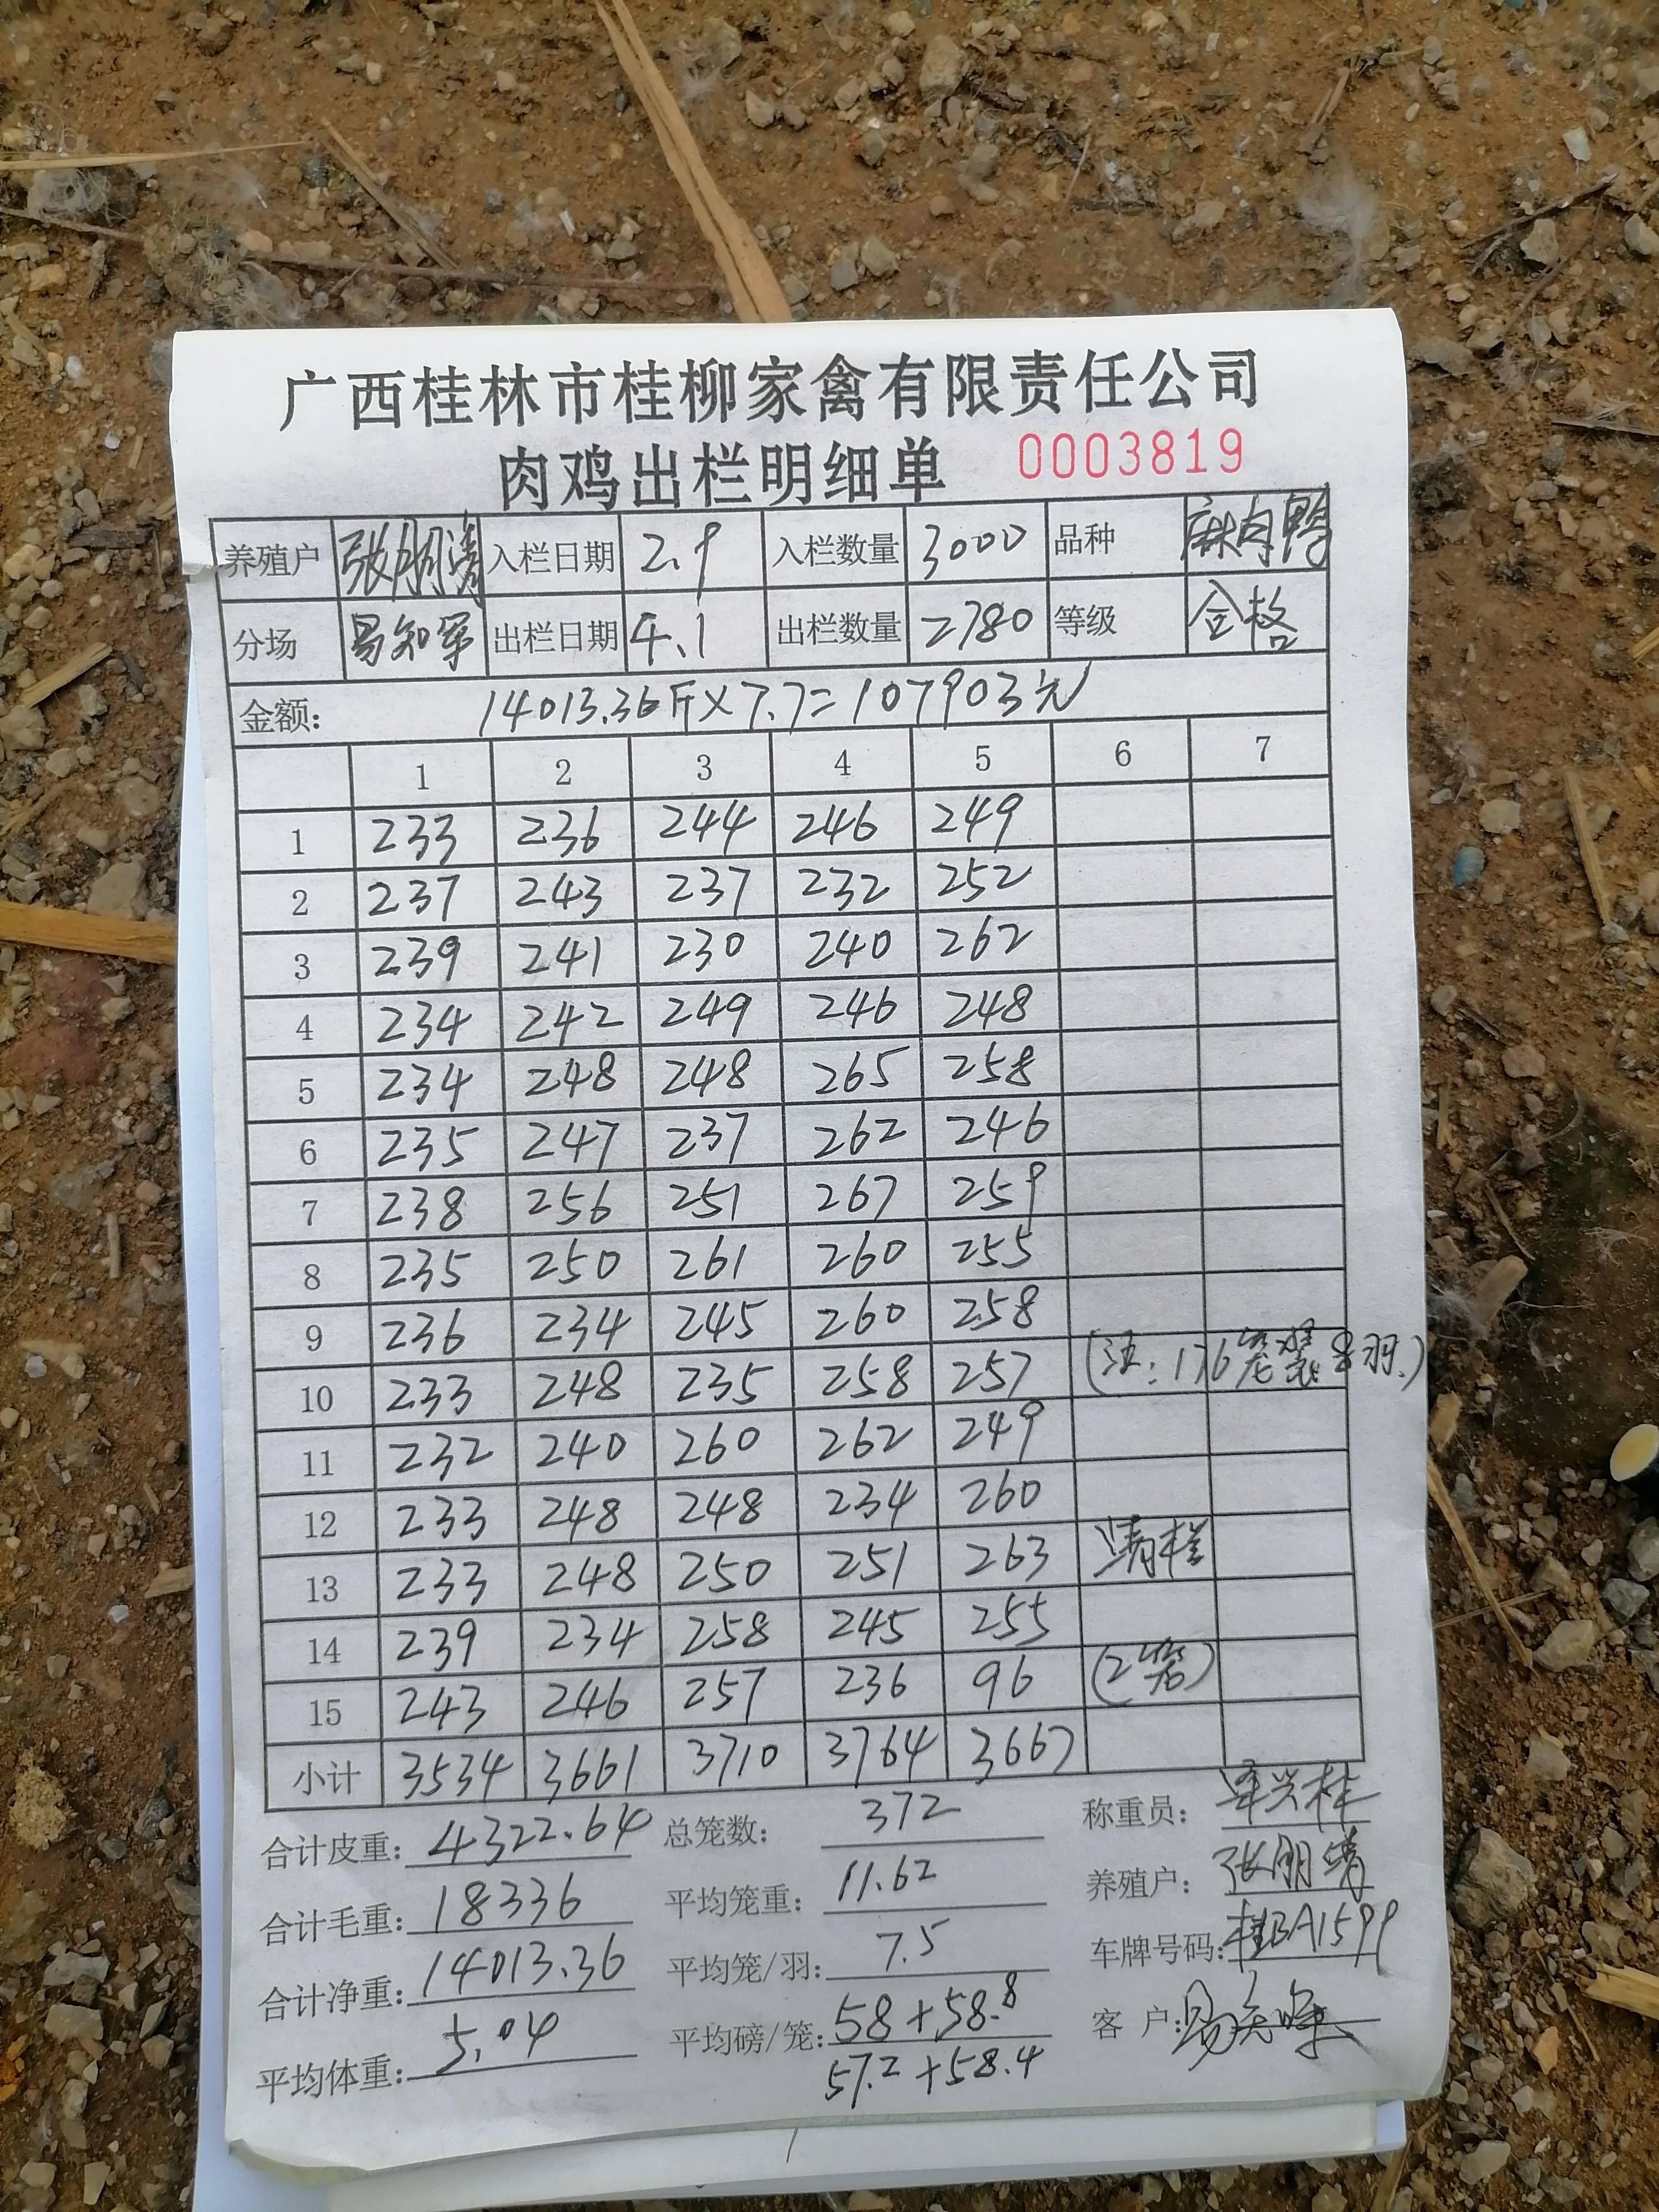 广西桂林市桂柳家禽有限责任公司
肉鸡出栏明细单 0003819
养殖户 张朋清 入栏日期 2.9 入栏数量 3000 品种 麻肉鸭
分场 易知军 出栏日期 4.1 出栏数量 2780 等级 合格
金额: 14013.36斤×7.7=107903元
1 2 3 4 5 6 7
1 233 236 244 246 249
2 237 243 237 232 252
3 239 241 230 240 262
4 234 242 249 246 248
5 234 248 248 265 258
6 235 247 237 262 246
7 238 256 251 267 259
8 235 250 261 260 255
9 236 234 245 260 258
10 233 248 235 258 257 (注:176笼装8羽.)
11 232 240 260 262 249
12 233 248 248 234 260
13 233 248 250 251 263 清栏
14 239 234 258 245 255
15 243 246 257 236 96 (2笼)
小计 3534 3661 3710 3764 3667
合计皮重: 4322.64 总笼数: 372 称重员:
合计毛重: 18336 平均笼重: 11.62 养殖户: 张朋清
合计净重: 14013.36 平均笼/羽: 7.5 车牌号码: 桂BA1599
平均体重: 5.04 平均磅/笼: 58+58.8 客户:
57.2+58.4